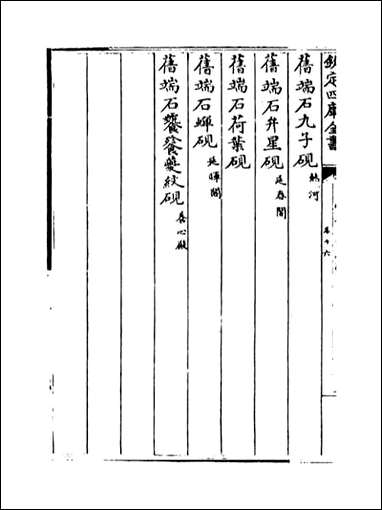 欽定四庫全書
卷十六
舊端石九子硯 熱河
舊端石弁星硯 延春閣
舊端石荷葉硯
舊端石蟬硯 延暉閣
舊端石饕餮夔紋硯 養心殿